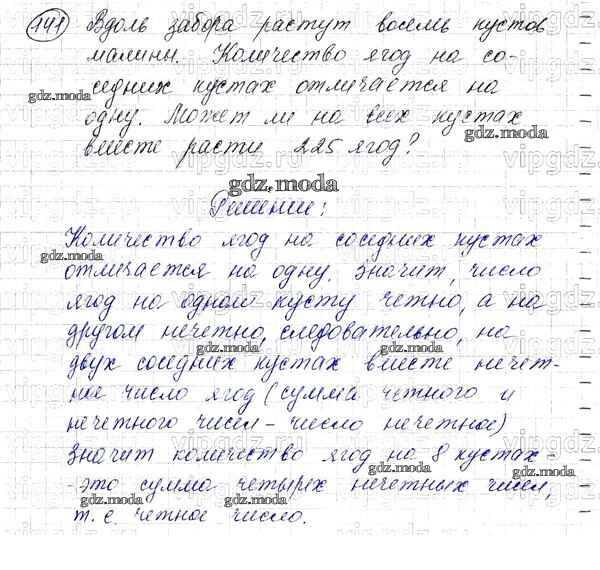 141 Вдоль забора растут восемь кустов
малины. Количество ягод на со-
седних кустах отличается на
одну. Может ли на всех кустах
вместе расти 225 ягод?
Решение:
Количество ягод на соседних кустах
отличается на одну. Значит, число
ягод на одном кусту четно, а на
другом нечетно, следовательно, на
двух соседних кустах вместе нечет-
ное число ягод (сумма четного и
нечетного чисел - число нечетное)
Значит количество ягод на 8 кустах -
- это сумма четырех нечетных чисел,
т. е. четное число.
gdz.moda
gdz.moda
gdz.moda
gdz.moda
gdz.moda
gdz.moda
gdz.moda
gdz.moda
gdz.moda
gdz.moda
gdz.moda
gdz.moda